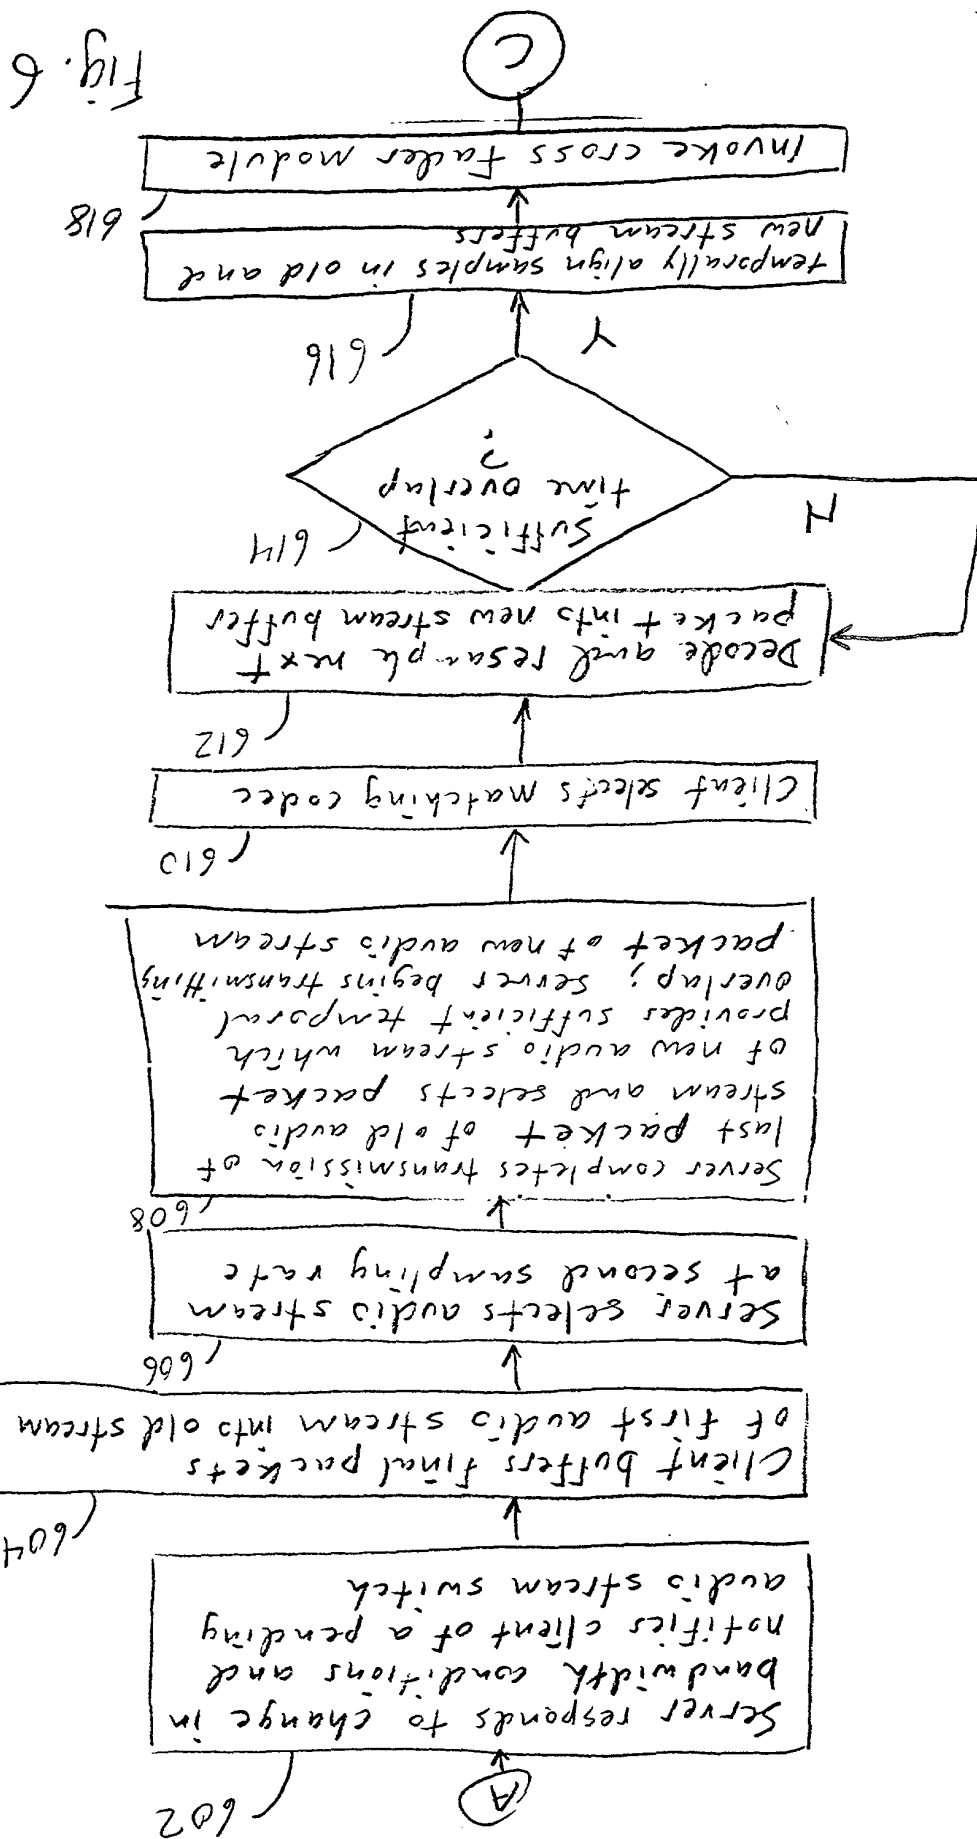 A
602
Server responds to change in
bandwidth conditions and
notifies client of a pending
audio stream switch
604
Client buffers final packets
of first audio stream into old stream
606
Server selects audio stream
at second sampling rate
608
Server completes transmission of
last packet of old audio
stream and selects packet
of new audio stream which
provides sufficient temporal
overlap; server begins transmitting
packet of new audio stream
610
Client selects matching codec
612
Decode and resample next
packet into new stream buffer
614
Sufficient
time overlap
?
N
Y
616
temporally align samples in old and
new stream buffers
618
Invoke cross fader module
C
Fig. 6